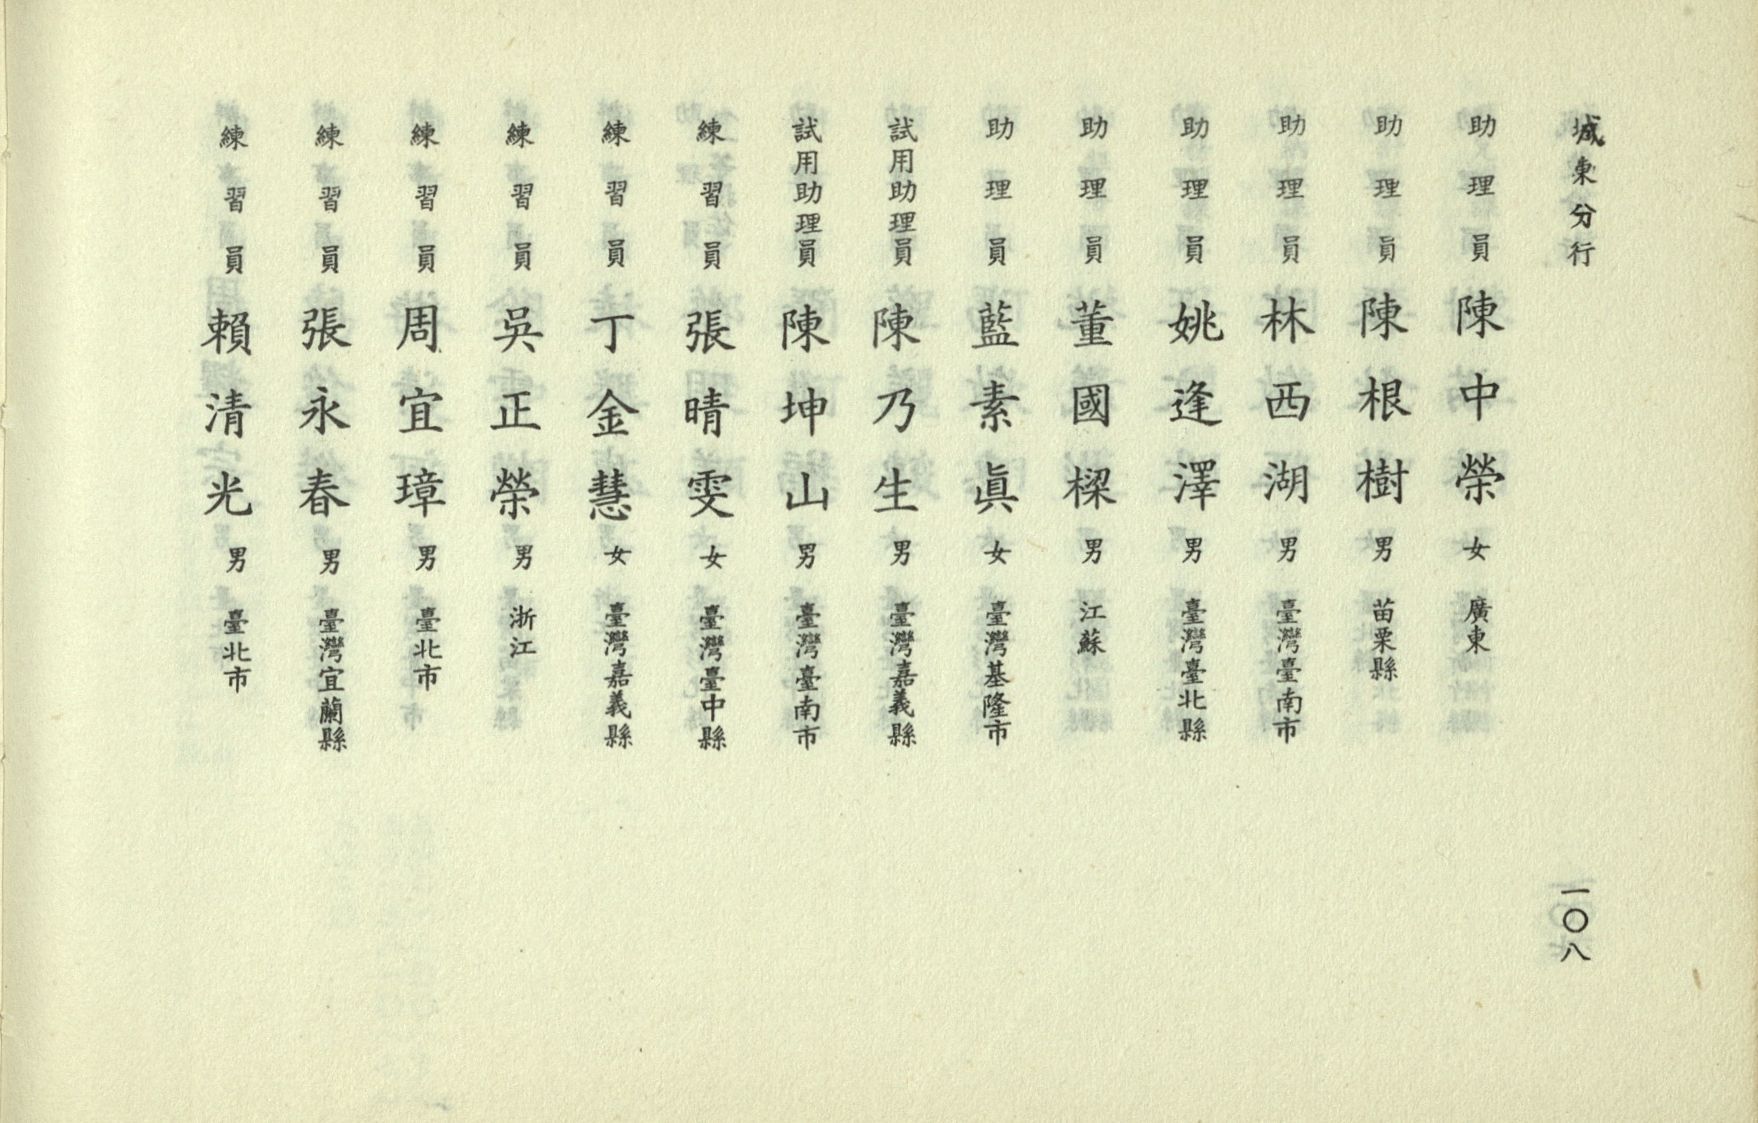 城東分行
助理員 陳中榮 女 廣東
助理員 陳根樹 男 苗栗縣
助理員 林西湖 男 臺灣臺南市
助理員 姚逢澤 男 臺灣臺北縣
助理員 董國樑 男 江蘇
助理員 藍素眞 女 臺灣基隆市
試用助理員 陳乃生 男 臺灣嘉義縣
試用助理員 陳坤山 男 臺灣臺南市
練習員 張晴雯 女 臺灣臺中縣
練習員 丁金慧 女 臺灣嘉義縣
練習員 吳正榮 男 浙江
練習員 周宜璋 男 臺北市
練習員 張永春 男 臺灣宜蘭縣
練習員 賴清光 男 臺北市
一〇八